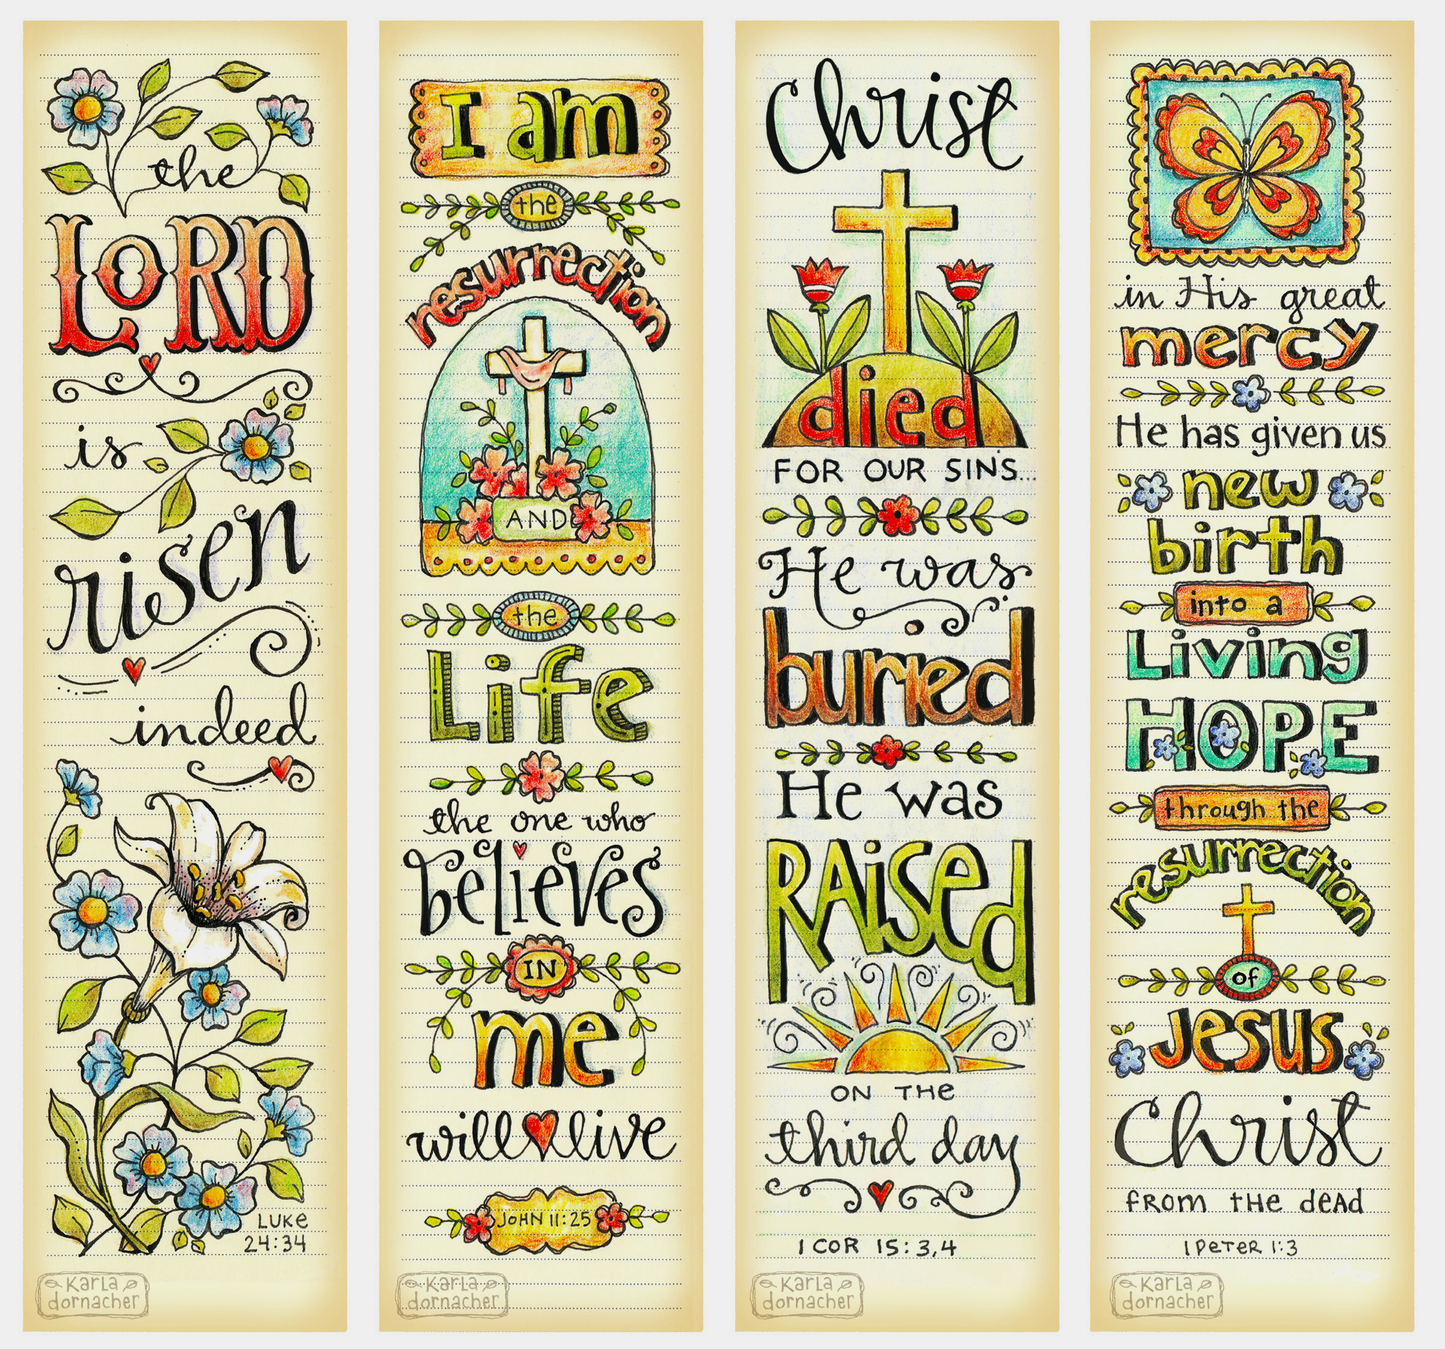 the
LORD
is
risen
indeed
LUKE
24:34
Karla
dornacher
I am
the
resurrection
AND
the
Life
the one who
believes
IN
me
will live
JOHN 11:25
Karla
dornacher
Christ
died
FOR OUR SINS...
He was
buried
He was
RAiSed
ON THE
third day
1 COR 15:3,4
Karla
dornacher
in His great
mercy
He has given us
new
birth
into a
Living
HOPE
through the
resurrection
of
JESUS
Christ
FROM THE DEAD
1 PETER 1:3
Karla
dornacher